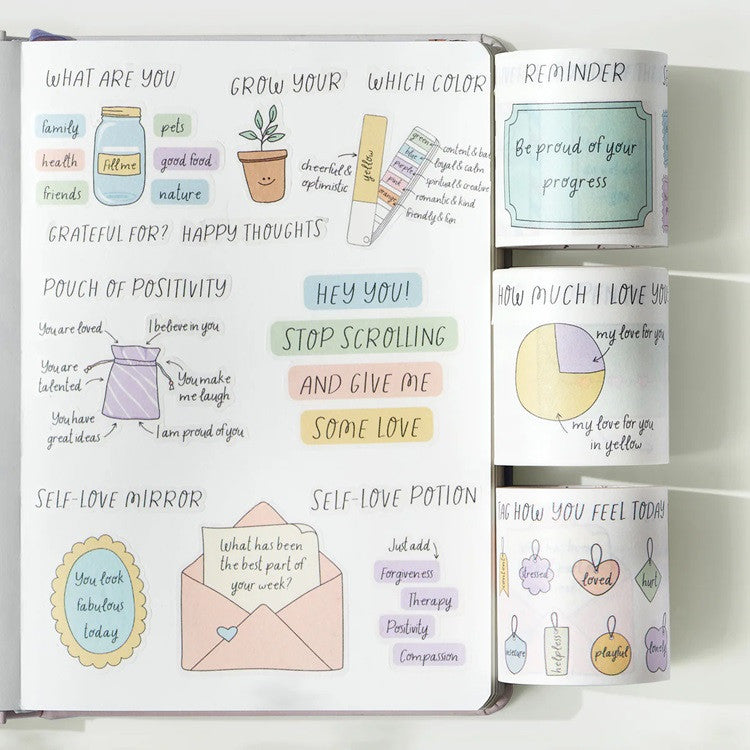 WHAT ARE YOU
family
health
friends
All me
pets
good food
nature
GRATEFUL FOR?
GROW YOUR
HAPPY THOUGHTS
WHICH COLOR
cheerful &
optimistic
yellow
green
blue
purple
pink
orange
loyal & calm
spiritual & creative
romantic & kind
friendly & fun
POUCH OF POSITIVITY
You are loved
I believe in you
You are
talented
You make
me laugh
You have
great ideas
I am proud of you
HEY YOU!
STOP SCROLLING
AND GIVE ME
SOME LOVE
SELF-LOVE MIRROR
You look
fabulous
today
What has been
the best part of
your week?
SELF-LOVE POTION
Just add
Forgiveness
Therapy
Positivity
Compassion
REMINDER
Be proud of your
progress
HOW MUCH I LOVE YOU
my love for you
my love for you
in yellow
TAG HOW YOU FEEL TODAY
stressed
loved
hurt
helpless
playful